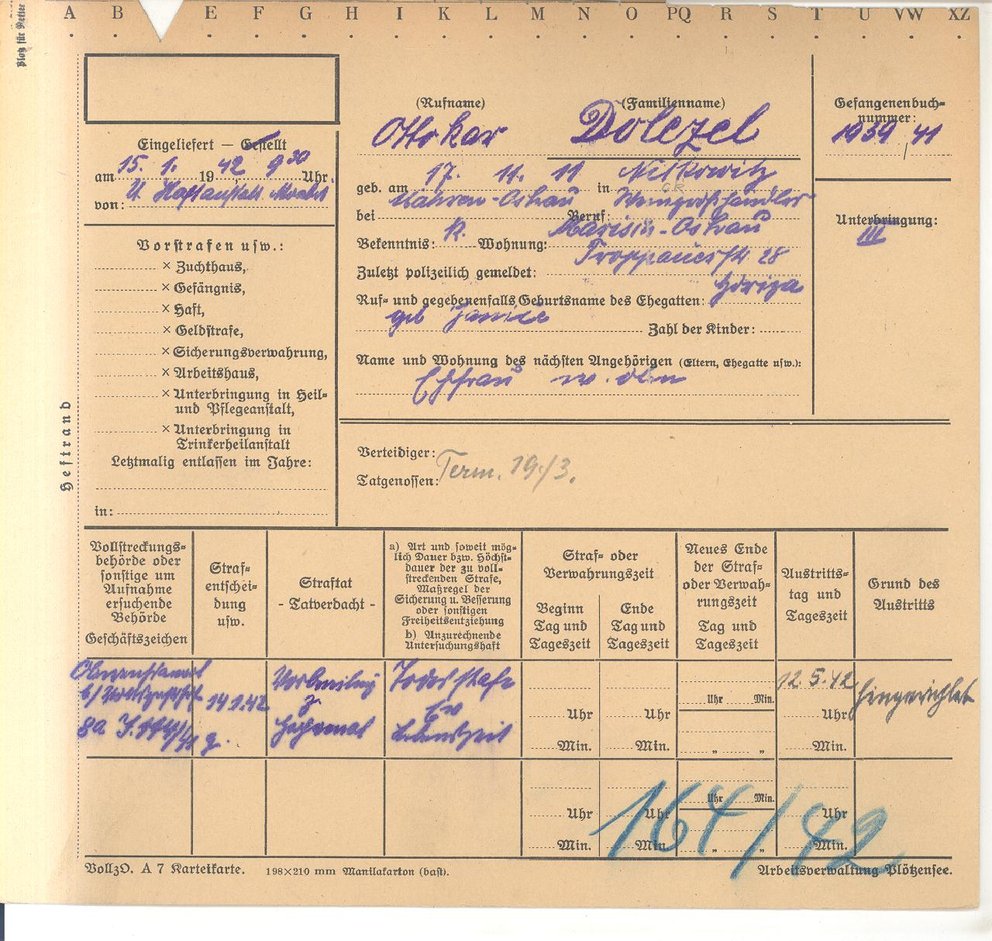 A B E F G H I K L M N O PQ R S T U VW XZ
(Rufname) (Familienname) Gefangenenbuch-
nummer:
Ottokar Dolezel 1939/41
Eingeliefert – Gestellt
am 15. 1. 1942 9 30 Uhr,
von: U. Haftanstalt Moabit
geb. am 17. 11. 11 in Witkowitz
bei Mähren-Ostrau Beruf: Weingroßhändler
Bekenntnis: K. Wohnung: Mährisch-Ostrau
Troppauerstr 28
Zuletzt polizeilich gemeldet:
Ruf- und gegebenenfalls Geburtsname des Ehegatten:
geb
Zahl der Kinder:
Name und Wohnung des nächsten Angehörigen (Eltern, Ehegatte usw.):
Ehefrau w. oben
Unterbringung:
III
Vorstrafen usw.:
× Zuchthaus,
× Gefängnis,
× Haft,
× Geldstrafe,
× Sicherungsverwahrung,
× Arbeitshaus,
× Unterbringung in Heil-
und Pflegeanstalt,
× Unterbringung in
Trinkerheilanstalt
Letztmalig entlassen im Jahre:
in:
Heftrand
Verteidiger:
Tatgenossen:
Term. 19./3.
Vollstreckungs-
behörde oder
sonstige um
Aufnahme
ersuchende
Behörde
Geschäftszeichen
Straf-
entschei-
dung
usw.
Straftat
- Tatverdacht -
a) Art und soweit mög-
lich Dauer bzw. Höchst-
dauer der zu voll-
streckenden Strafe,
Maßregel der
Sicherung u. Besserung
oder sonstigen
Freiheitsentziehung
b) Anzurechnende
Untersuchungshaft
Straf- oder
Verwahrungszeit
Beginn
Tag und
Tageszeit
Ende
Tag und
Tageszeit
Neues Ende
der Straf-
oder Verwah-
rungszeit
Tag und
Tageszeit
Austritts-
tag und
Tageszeit
Grund des
Austritts
Oberreichsanwalt
b/ Volksgerichtshof
14.1.42
Vorbereitung
z
Hochverrat
Todesstrafe
Ew
Lebenszeit
12.5.42
hingerichtet
Uhr Uhr Uhr Min. Uhr
Min. Min. " " Min.
Uhr Uhr Uhr Min. Uhr
Min. Min. " " Min.
164/42
VollzO. A 7 Karteikarte. 198×210 mm Manilakarton (hast). Arbeitsverwaltung Plötzensee.